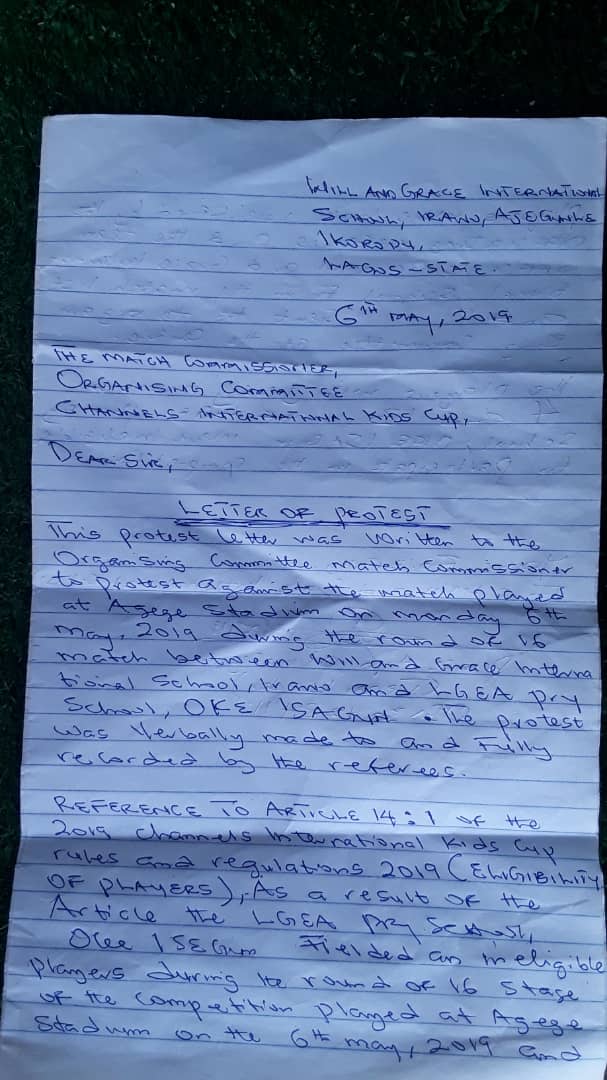 WILL AND GRACE INTERNATIONAL
SCHOOL, IRAWO, AJEGUNLE
IKORODU,
LAGOS-STATE.
6TH MAY, 2019
THE MATCH COMMISSIONER,
ORGANISING COMMITTEE
CHANNELS INTERNATIONAL KIDS CUP,
DEAR SIR,
LETTER OF PROTEST
This protest letter was written to the
Organising Committee match Commissioner
to protest against the match played
at Agege Stadium on monday 6th
may, 2019 during the round of 16
match between Will and Grace Interna
tional School, Irawo and LGEA pry
School, OKE ISAGUN. The protest
was Verbally made to and Fully
recorded by the referees.
REFERENCE TO ARTICLE 14:1 of the
2019 Channels International Kids Cup
rules and regulations 2019 (ELIGIBILITY
OF PLAYERS), As a result of the
Article the LGEA pry School,
Oke ISEGUN Fielded an ineligible
players during the round of 16 stage
of the Competition played at Agege
Stadium on the 6th may, 2019 and